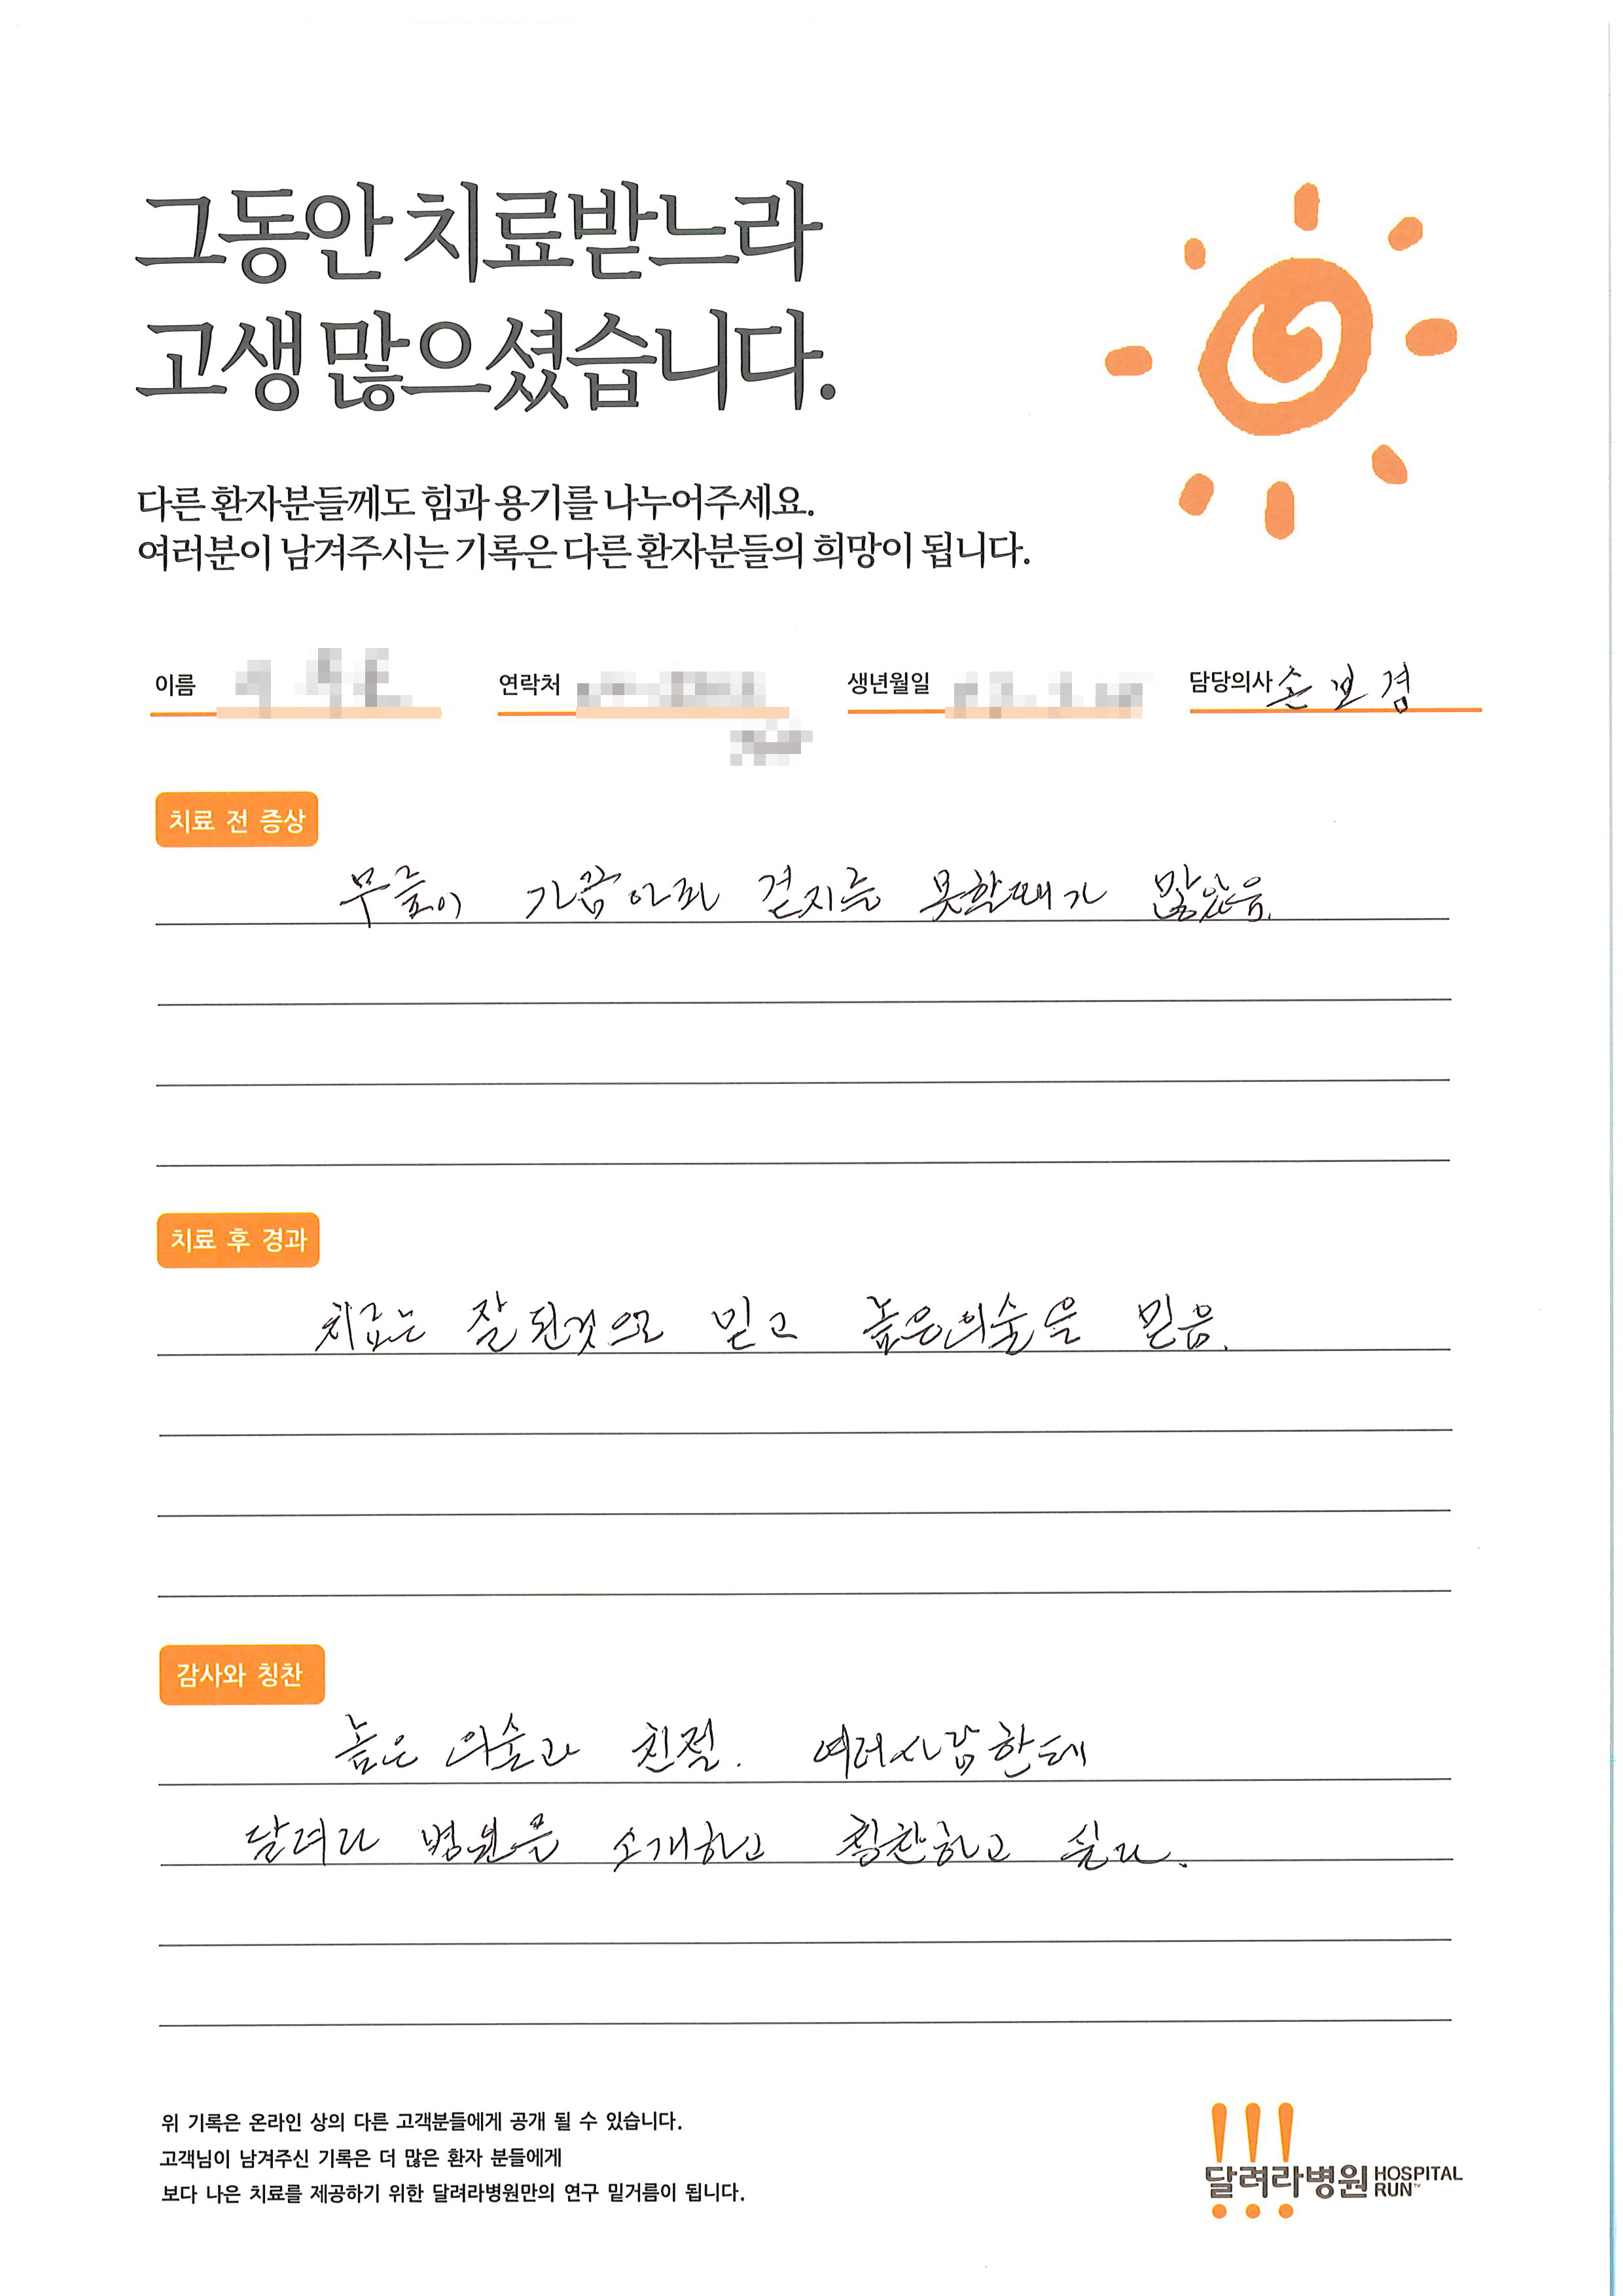 그동안 치료받느라
고생 많으셨습니다.
다른 환자분들께도 힘과 용기를 나누어주세요.
여러분이 남겨주시는 기록은 다른 환자분들의 희망이 됩니다.
이름 연락처 생년월일 담당의사 손보경
치료 전 증상
무릎이 가끔아파 걷지를 못할때가 많았음.
치료 후 경과
치료는 잘된것으로 믿고 높은의술을 믿음.
감사와 칭찬
높은 의술과 친절. 여러사람한테
달려라 병원을 소개하고 칭찬하고 싶다.
위 기록은 온라인 상의 다른 고객분들에게 공개 될 수 있습니다.
고객님이 남겨주신 기록은 더 많은 환자 분들에게
보다 나은 치료를 제공하기 위한 달려라병원만의 연구 밑거름이 됩니다.
달려라병원 HOSPITAL RUN™